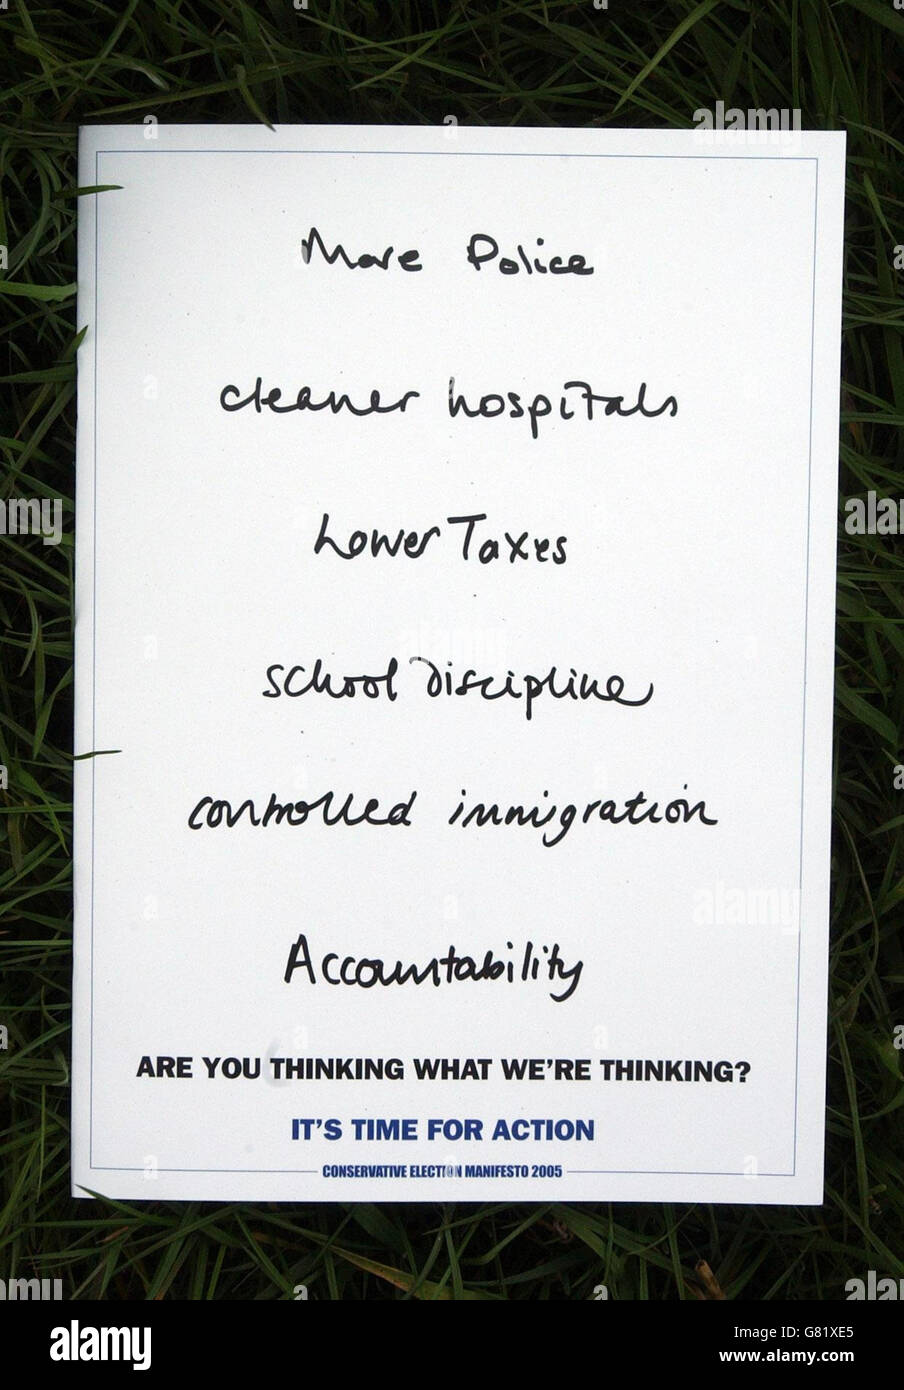 More Police
cleaner hospitals
Lower Taxes
school discipline
controlled immigration
Accountability
ARE YOU THINKING WHAT WE'RE THINKING?
IT'S TIME FOR ACTION
CONSERVATIVE ELECTION MANIFESTO 2005
alamy
Image ID: G81XE5
www.alamy.com